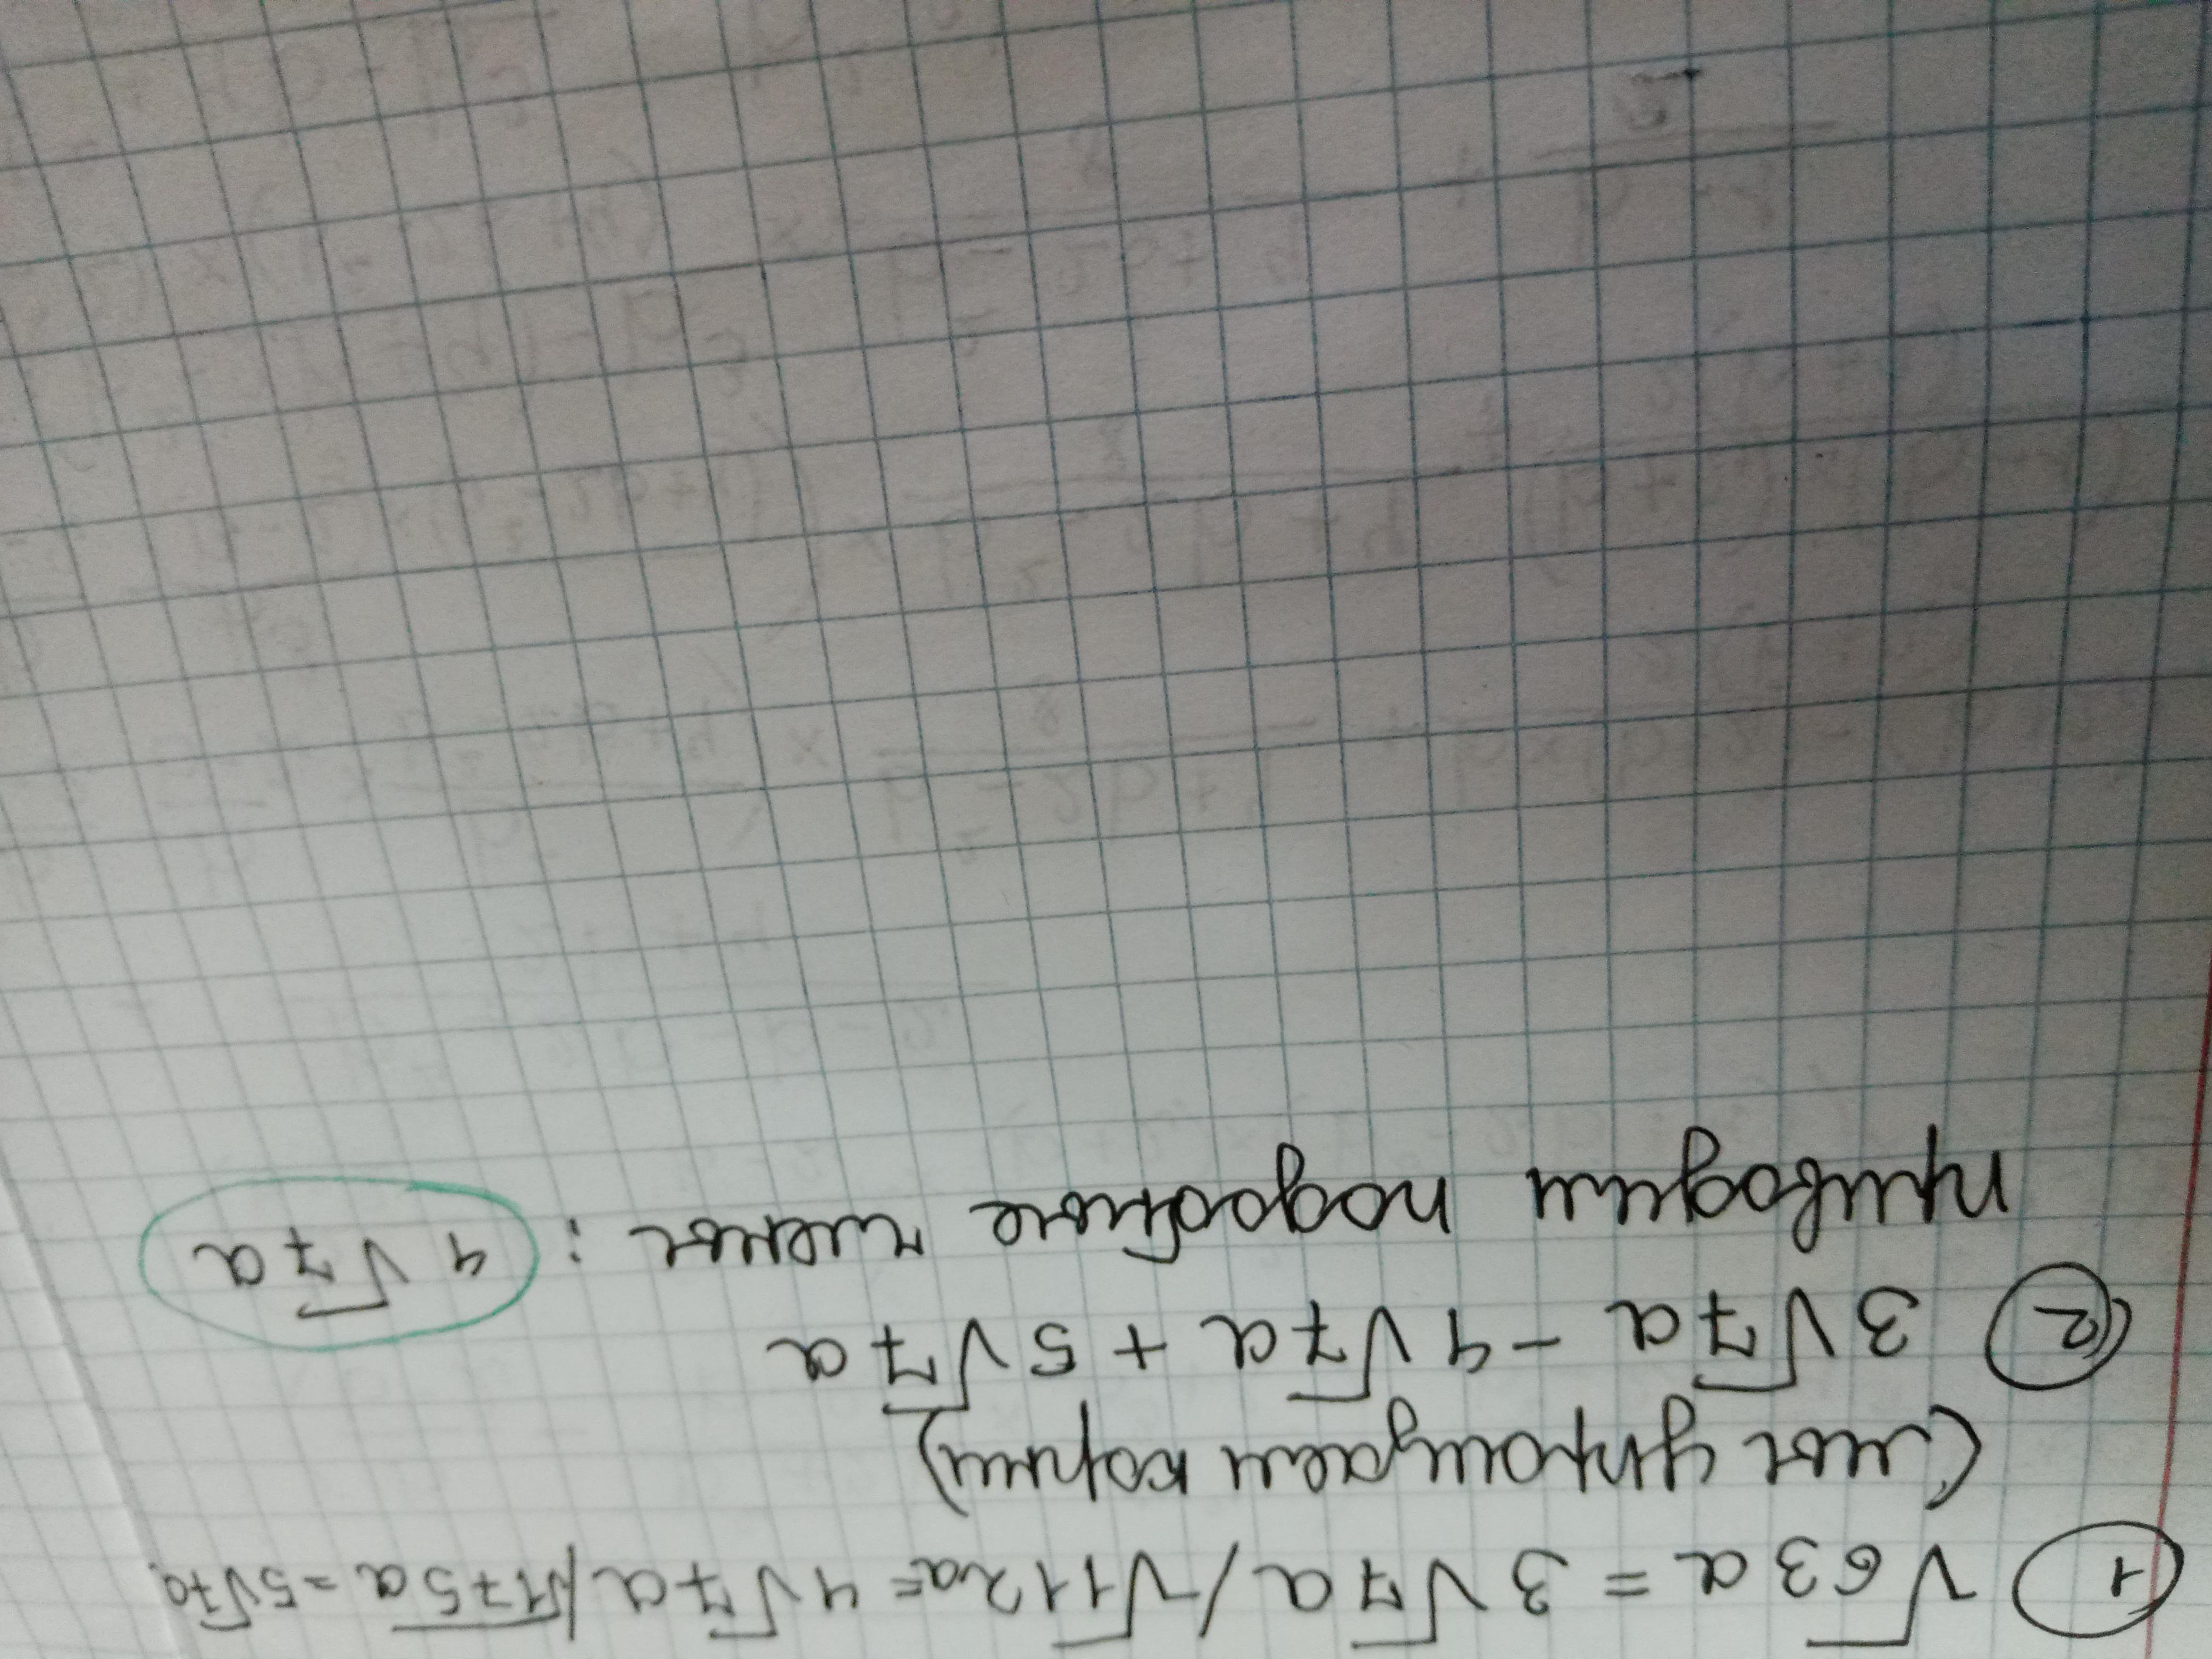 ① √63a = 3√7a / √112a = 4√7a / √175a = 5√7a
(мы упрощаем корни)
② 3√7a - 4√7a + 5√7a
приводим подобные члены: 4√7a